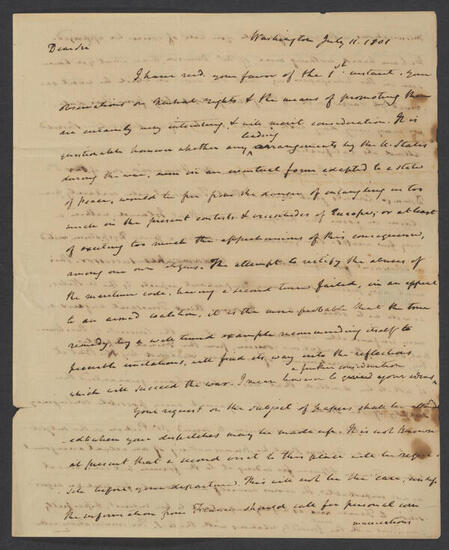 Washington July 11. 1801
Dear Sir
I have recd. your favor of the 1st instant. Your
observations on Neutral rights & the means of promoting them
are certainly very interesting, & will merit consideration. It is
leading
questionable however whether any arrangements by the U. States
during the war, even in an eventual form adapted to a state
of peace, would be free from the danger of entangling us too
much in the present contests & of Europe; or at least
of exciting too much the apprehensions of this consequence,
among our own citizens. The attempt to rectify the abuses of
the maritime code, having a second time failed, in an appeal
to an armed coalition, it is the more probable that the true
remedy, by a well timed example recommending itself to
invitations, will find its way into the reflections
which will succeed the war. I mean however to a further consideration your ideas,
Your request on the subject of shall be
edited when your dispatches may be made up. It is not known
at present that a second visit to this place will be requi-
site before your departure. This will not be the case, unless
the information from should call for personal com
munications